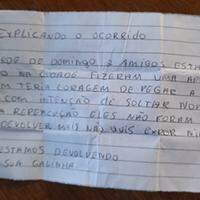 EXPLICANDO O OCORRIDO
DE DE DOMINGO 2 AMIGOS ESTA
NA CIDADE FIZERAM UMA AP
M TERIA CORAGEM DE PEGAR A
COM INTENÇÃO DE SOLTAR NOV
A REPERCUÇÃO ELES NÃO FORAM
DEVOLVER MAS NÃO QUIS EXPOR
ESTAMOS DEVOLVENDO
SUA GALINHA